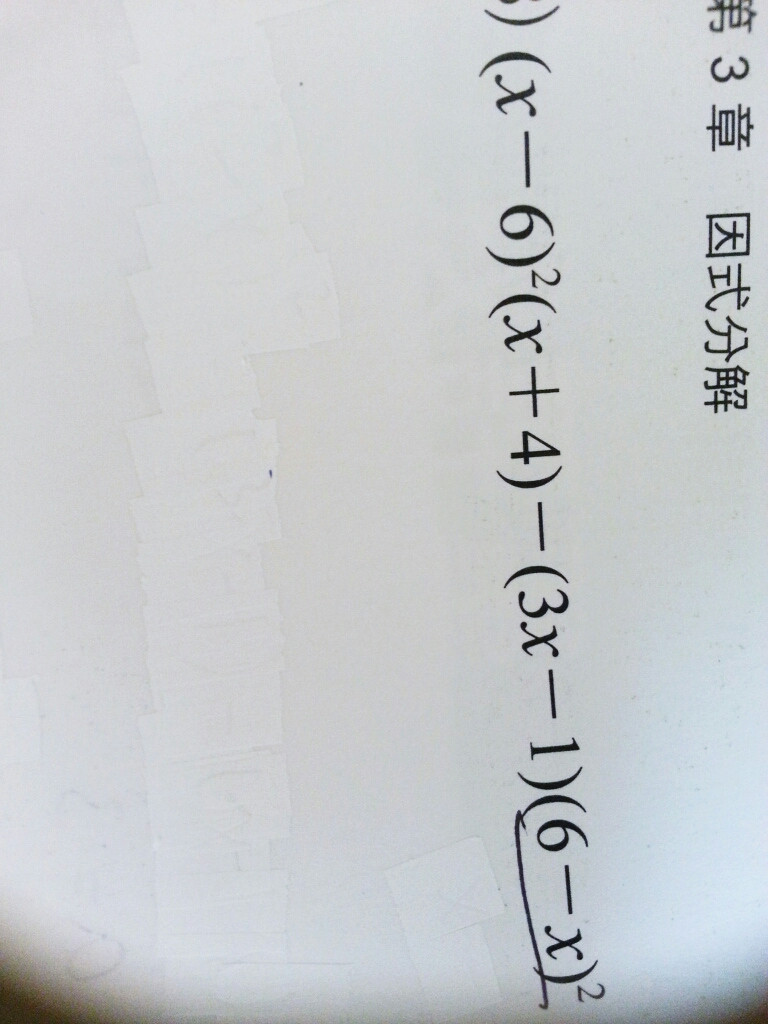 第 3 章 因式分解
) (x－6)²(x＋4)－(3x－1)(6－x)²